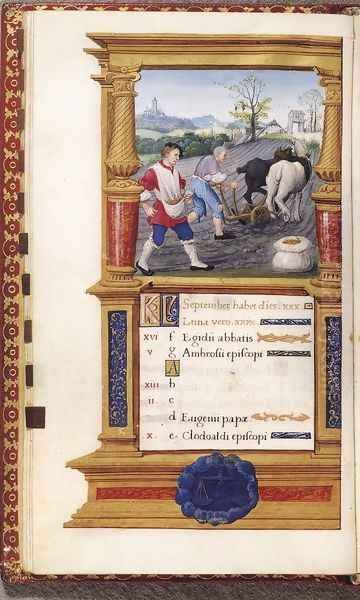 KL September habet dies. xxx.
Luna vero. xxix.
xvi f Egidii abbatis
v g Ambrosii episcopi
A
xiii b
ii c
d Eugenii papæ
x e Clodoaldi episcopi